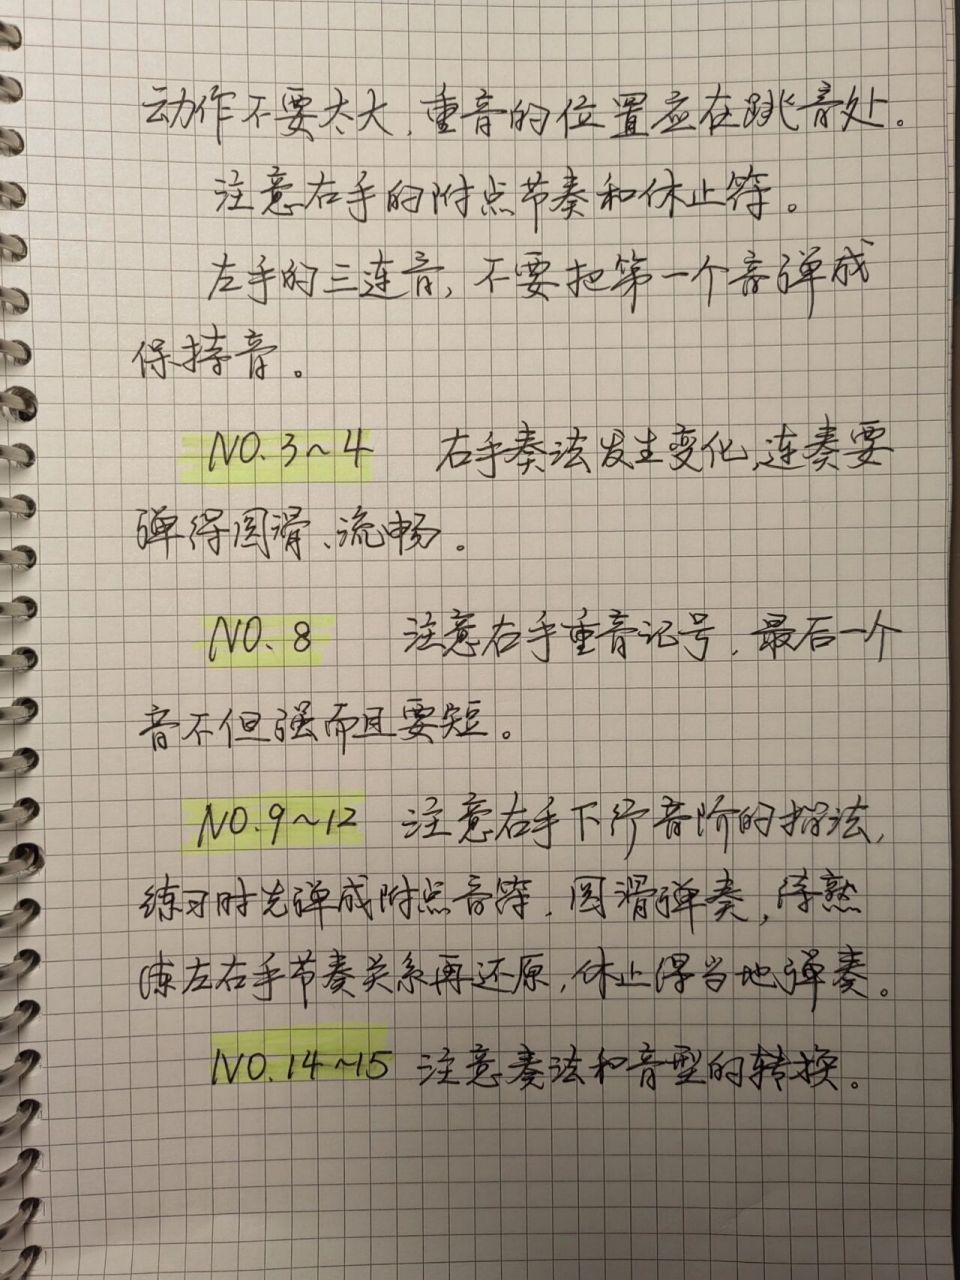 动作不要太大,重音的位置应在跳音处。
注意右手的附点节奏和休止符。
左手的三连音,不要把第一个音弹成
保持音。
NO.3~4 右手奏法发生变化,连奏要
弹得圆滑、流畅。
NO.8 注意右手重音记号,最后一个
音不但强而且要短。
NO.9~12 注意右手下行音阶的指法,
练习时先弹成附点音符,圆滑弹奏,待熟
练左右手节奏关系再还原,休止得当地弹奏。
NO.14~15 注意奏法和音型的转换。